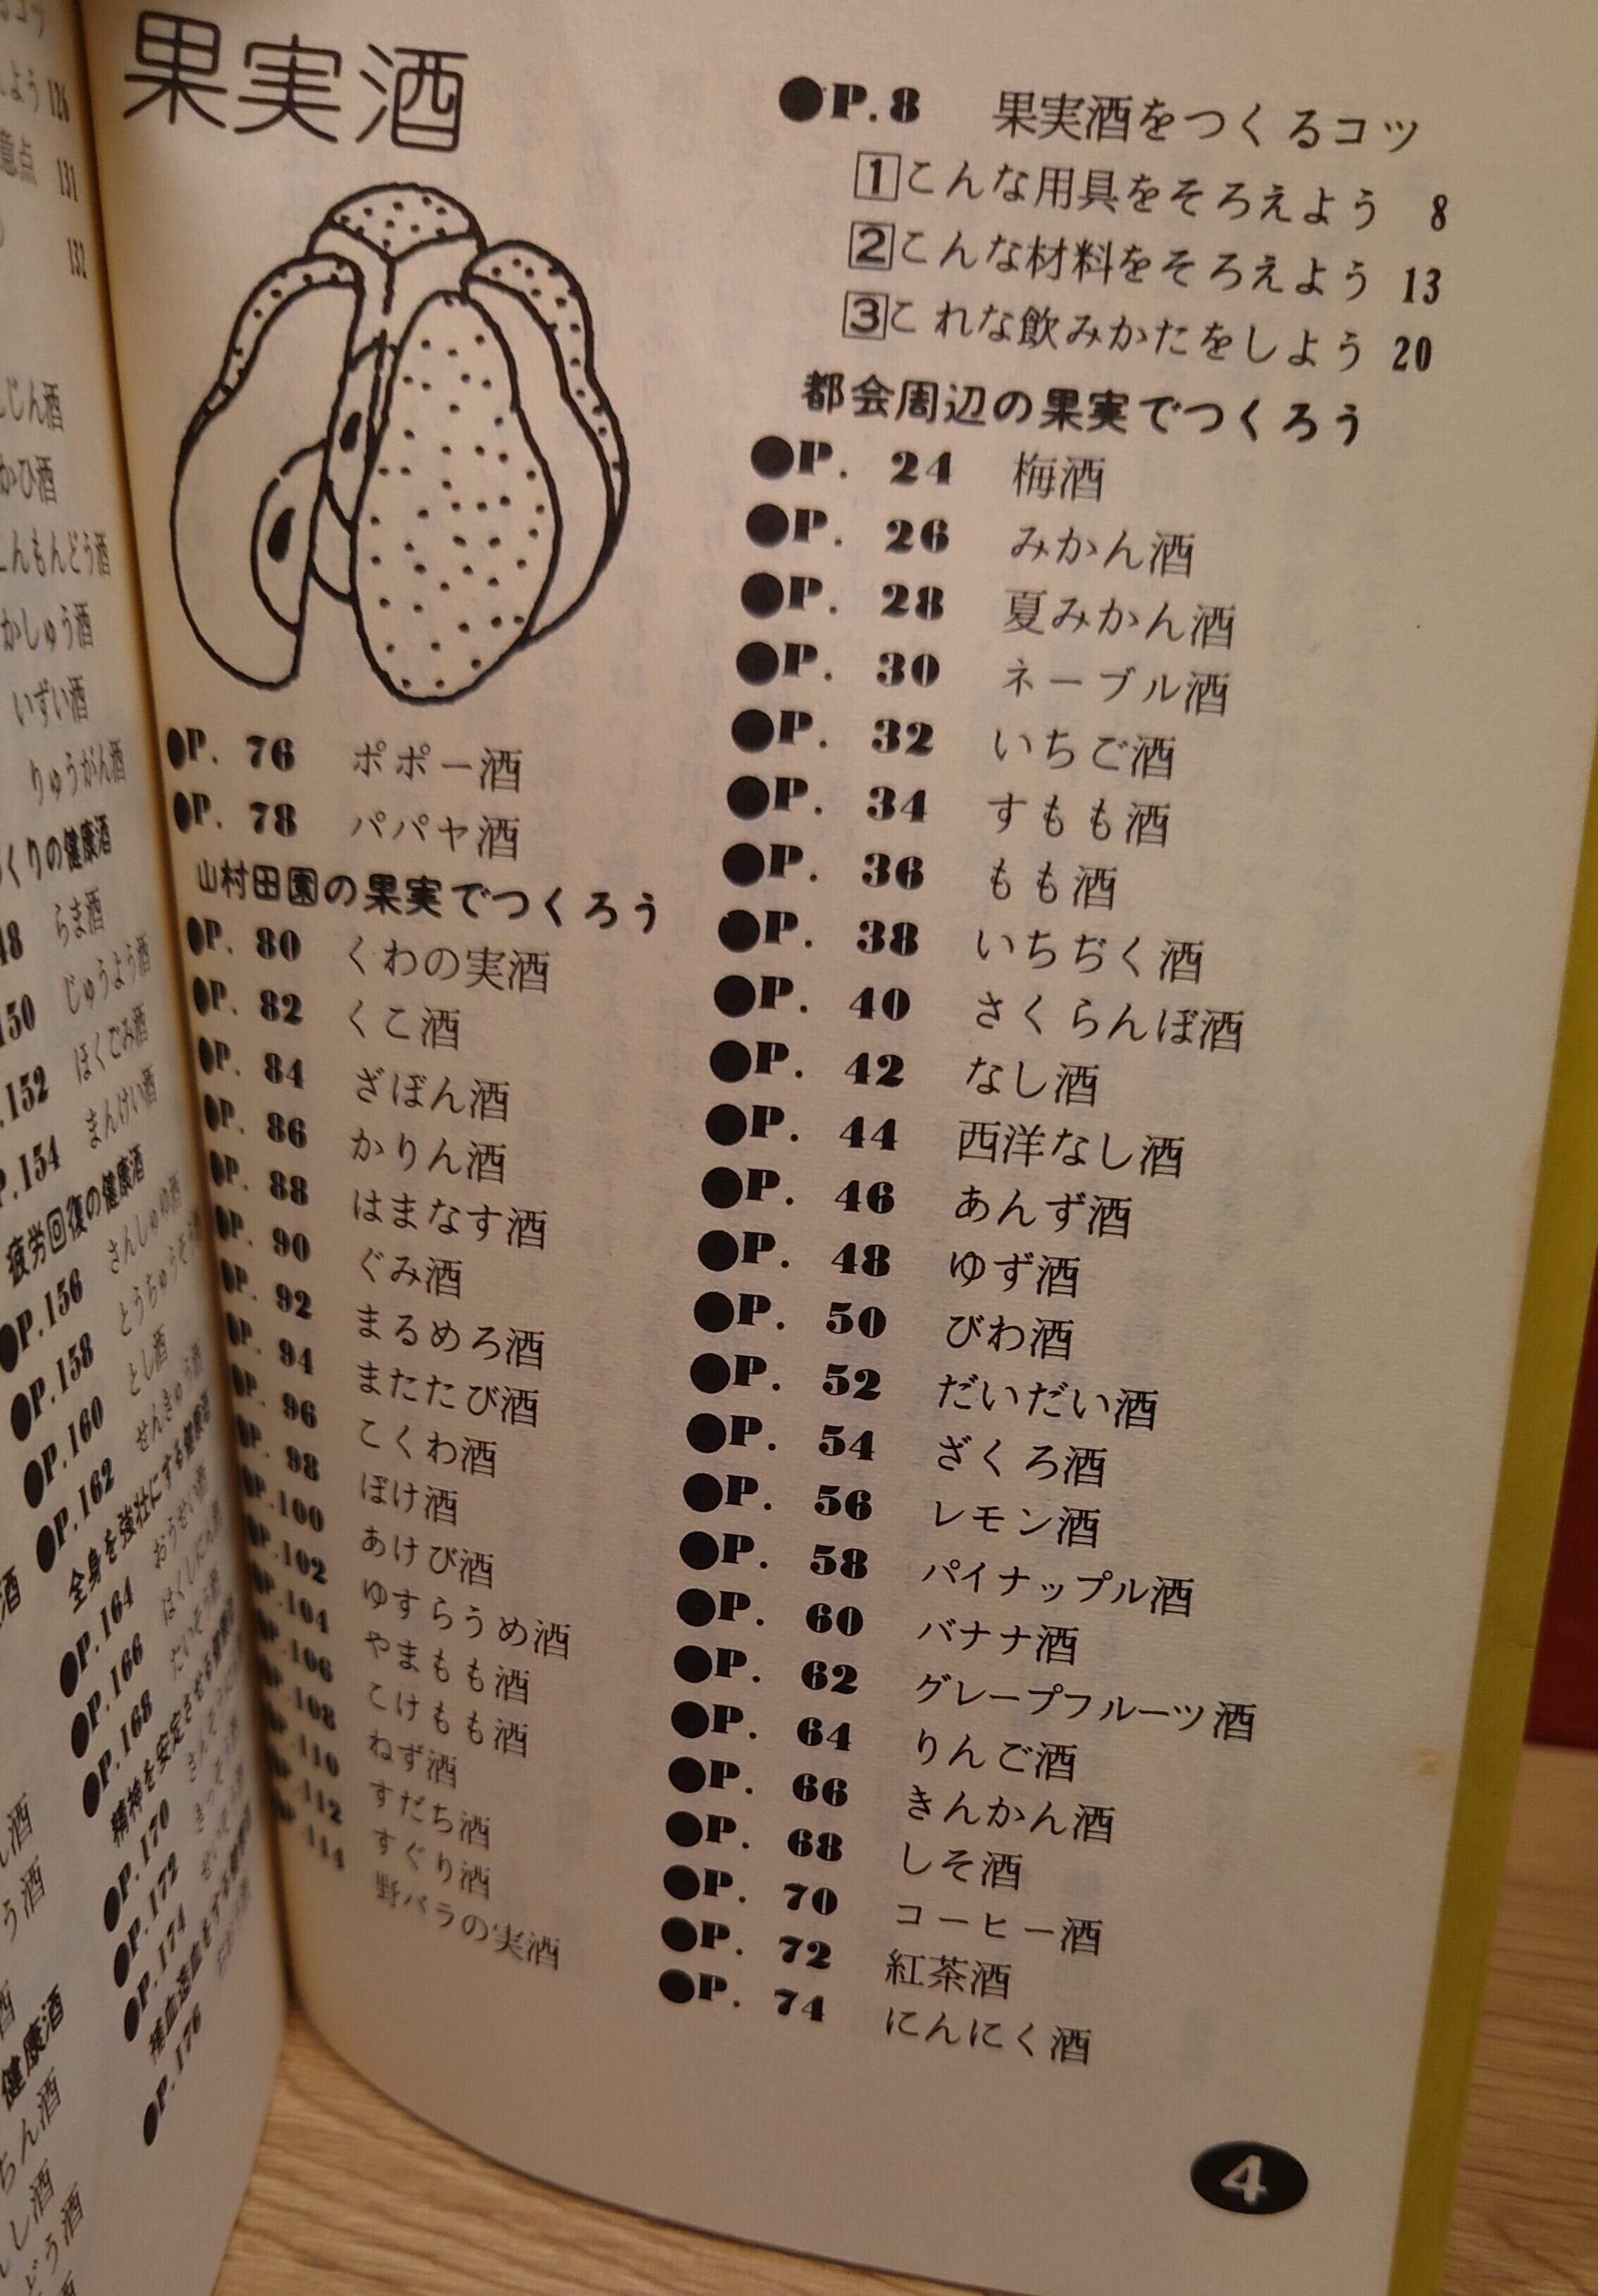 果実酒
●P.8 果実酒をつくるコツ
1こんな用具をそろえよう 8
2こんな材料をそろえよう 13
3これな飲みかたをしよう 20
都会周辺の果実でつくろう
●P. 24 梅酒
●P. 26 みかん酒
●P. 28 夏みかん酒
●P. 30 ネーブル酒
●P. 32 いちご酒
●P. 34 すもも酒
●P. 36 もも酒
●P. 38 いちぢく酒
●P. 40 さくらんぼ酒
●P. 42 なし酒
●P. 44 西洋なし酒
●P. 46 あんず酒
●P. 48 ゆず酒
●P. 50 びわ酒
●P. 52 だいだい酒
●P. 54 ざくろ酒
●P. 56 レモン酒
●P. 58 パイナップル酒
●P. 60 バナナ酒
●P. 62 グレープフルーツ酒
●P. 64 りんご酒
●P. 66 きんかん酒
●P. 68 しそ酒
●P. 70 コーヒー酒
●P. 72 紅茶酒
●P. 74 にんにく酒
●P. 76 ポポー酒
●P. 78 パパヤ酒
山村田園の果実でつくろう
●P. 80 くわの実酒
●P. 82 くこ酒
●P. 84 ざぼん酒
●P. 86 かりん酒
●P. 88 はまなす酒
●P. 90 ぐみ酒
●P. 92 まるめろ酒
●P. 94 またたび酒
●P. 96 こくわ酒
●P. 98 ぼけ酒
●P.100 あけび酒
●P.102 ゆすらうめ酒
●P.104 やまもも酒
●P.106 こけもも酒
●P.108 ねず酒
●P.110 すだち酒
●P.112 すぐり酒
●P.114 野バラの実酒
4
126
意点 131
132
じん酒
かひ酒
もんどう酒
かしゅう酒
いずい酒
りゅうがん酒
くりの健康酒
らま酒
150 じゅうよう酒
.152 ほくごみ酒
P.154 まんけい酒
疲労回復の健康酒
●P.156 さんしゅゆ酒
●P.158 とうちゅうそう酒
●P.160 とし酒
●P.162 せんきゅう酒
全身を強壮にする健康酒
●P.164 おうせい酒
●P.166
●P.168 たいそう酒
精神を安定させる健康酒
●P.170
●P.172
●P.174
補血造血をする健康酒
●P.176
健康酒